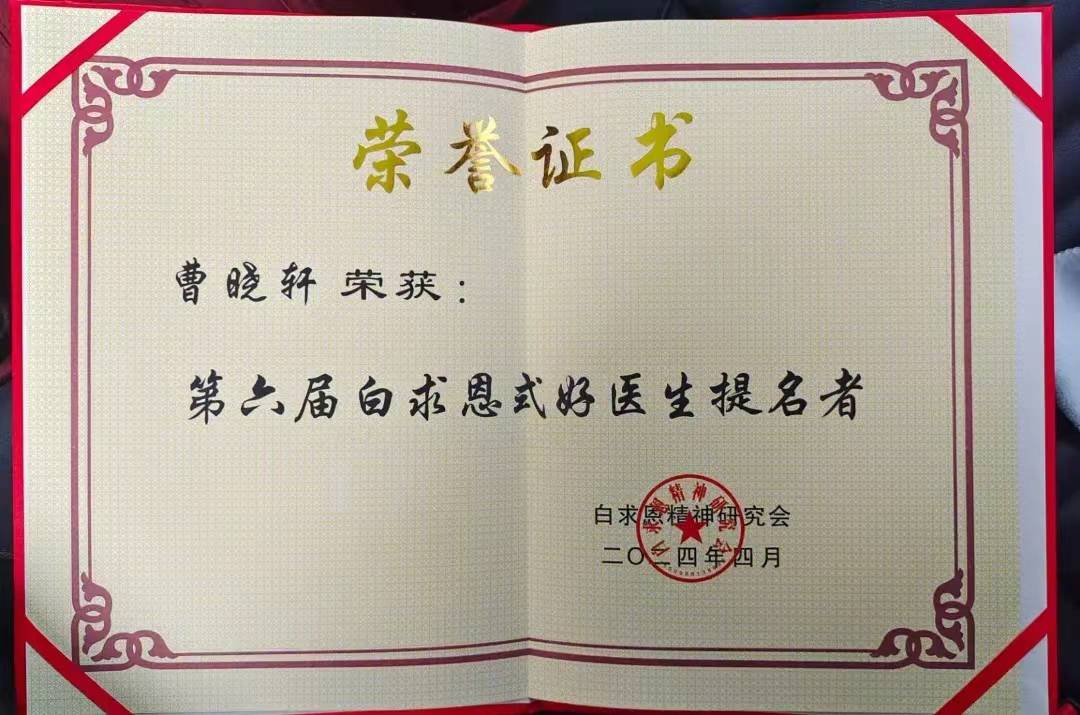 荣誉证书
曹晓轩 荣获：
第六届白求恩式好医生提名者
白求恩精神研究会
二〇二四年四月
白求恩精神研究会